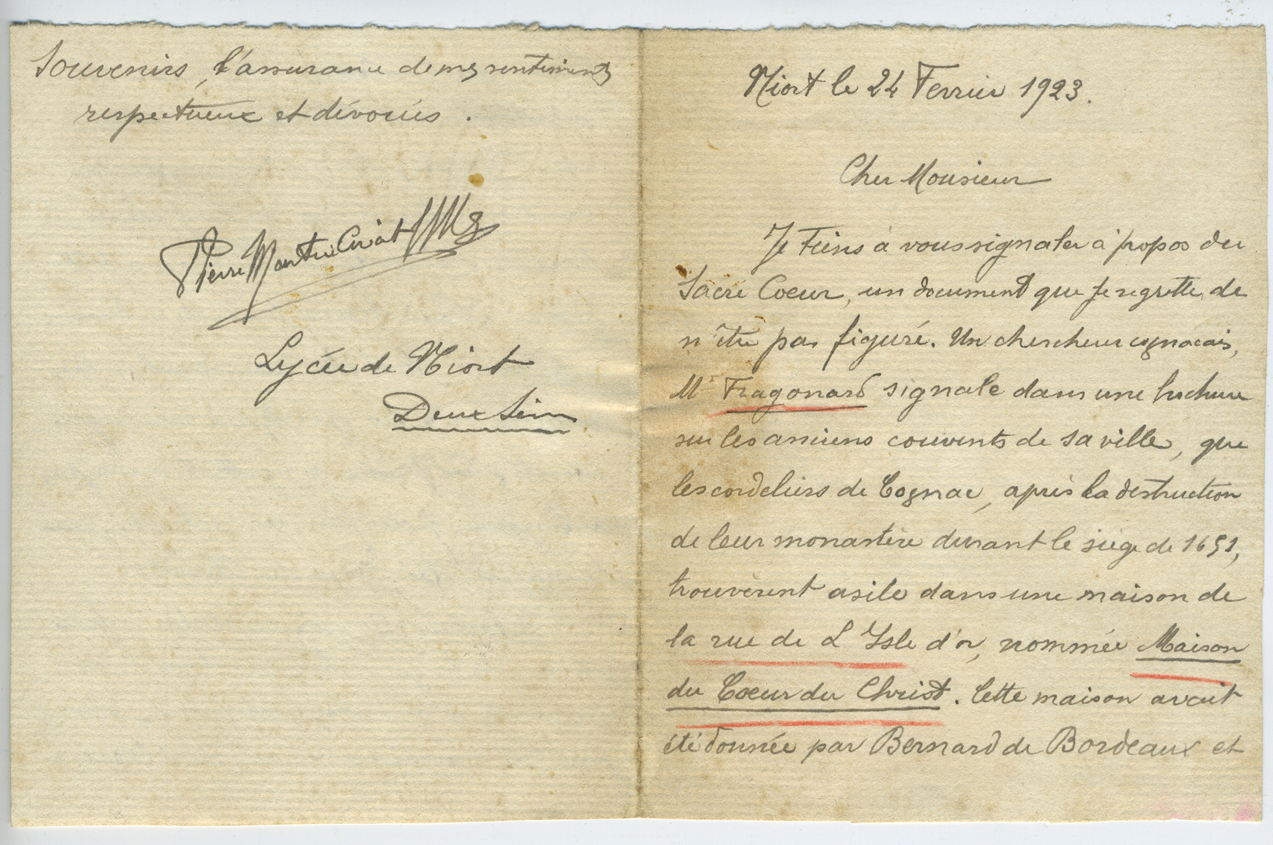 Souvenirs, l'assurance de mes sentiments
respectueux et dévoués.
Pierre
Lycée de Niort
Deux Sèvres
Niort le 24 Fevrier 1923.
Cher Monsieur
Je tiens à vous signaler à propos du
Sacré Coeur, un document que je regrette de
n'être pas figuré. Un chercheur cognacais,
Mr Fragonard signale dans une brochure
sur les anciens couvents de sa ville, que
les cordeliers de Cognac, après la destruction
de leur monastère durant le siège de 1651,
trouvèrent asile dans une maison de
la rue de L'Isle d'or, nommée Maison
du Coeur du Christ. Cette maison avait
été donnée par Bernard de Bordeaux et